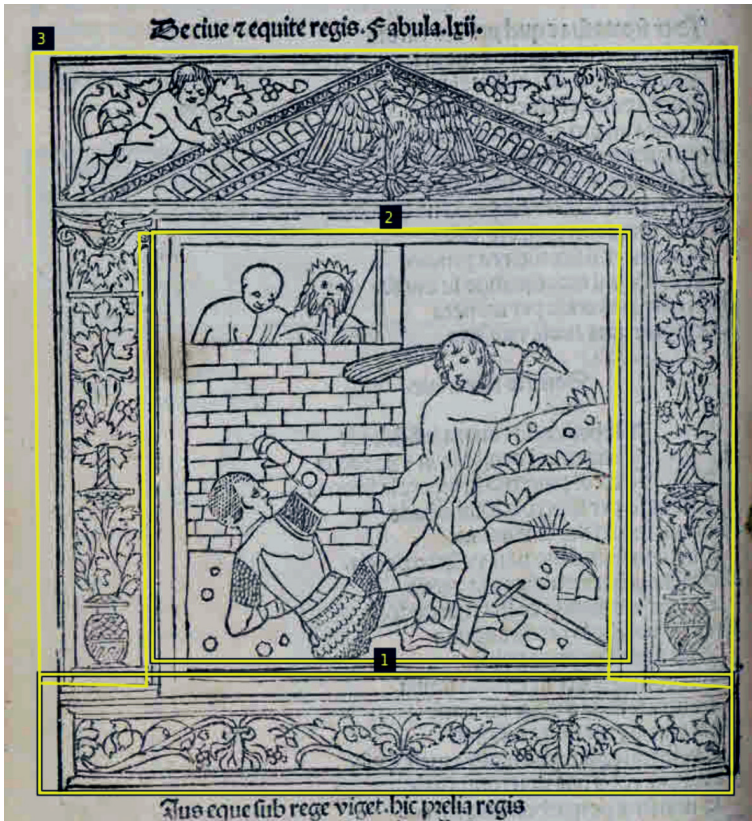 3
De ciue ⁊ equite regis. Fabula. lxij.
2
1
Jus eque sub rege viget. hic prelia regis